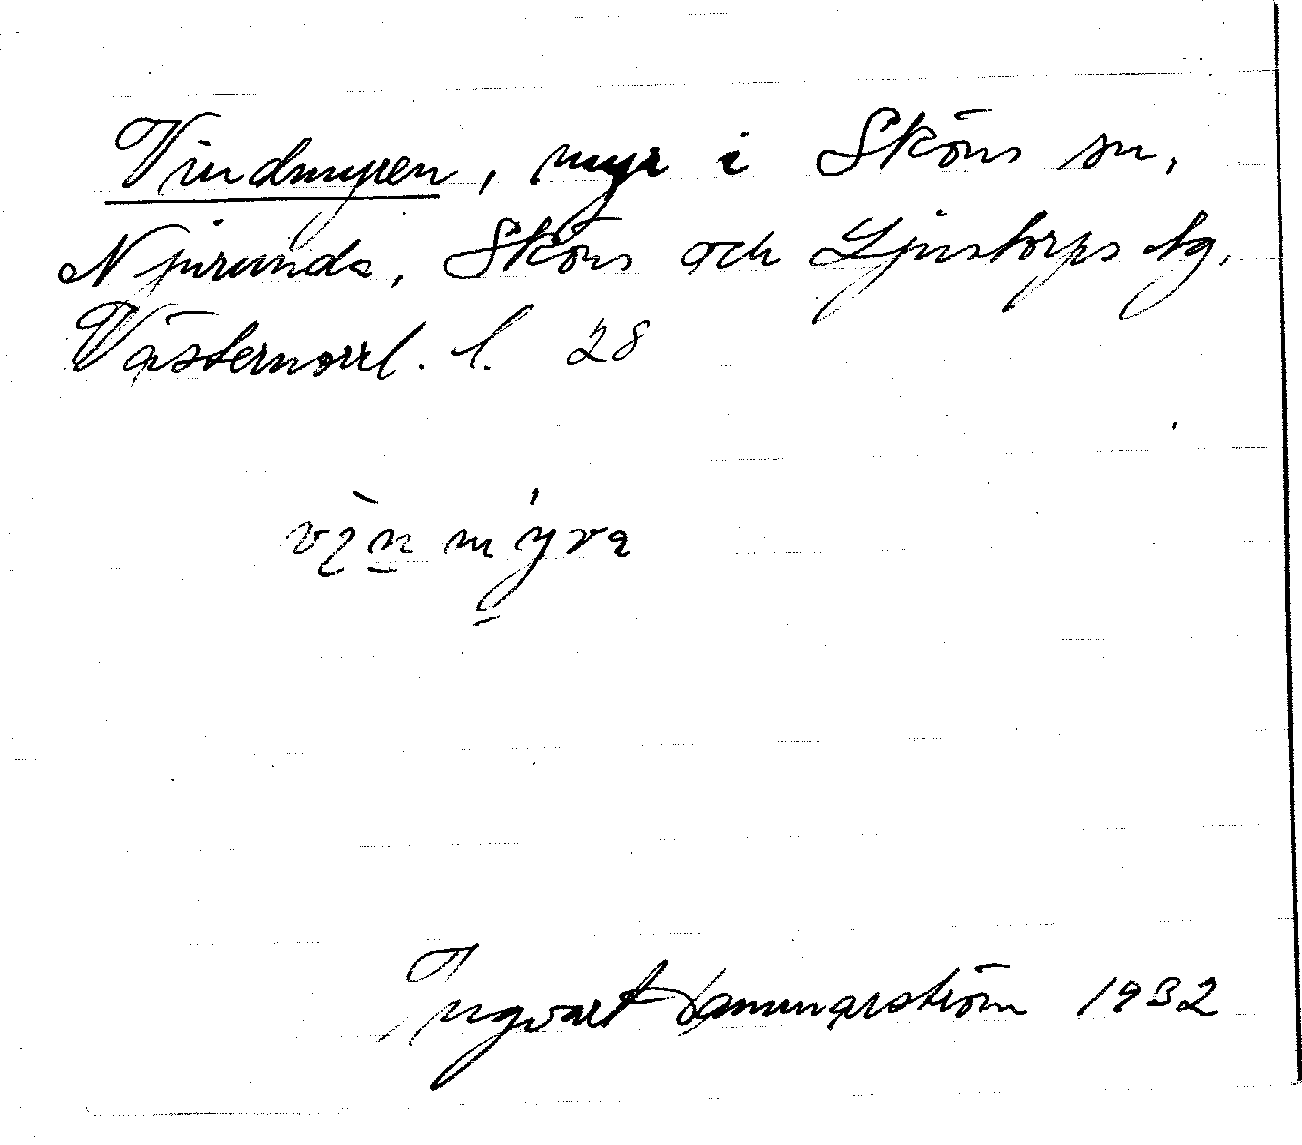 Vindmyren, myr i Sköns sn,
Njurunda, Sköns och Ljustorps tg,
Västernorrl. l. 28
Ingvart Hammarström 1932